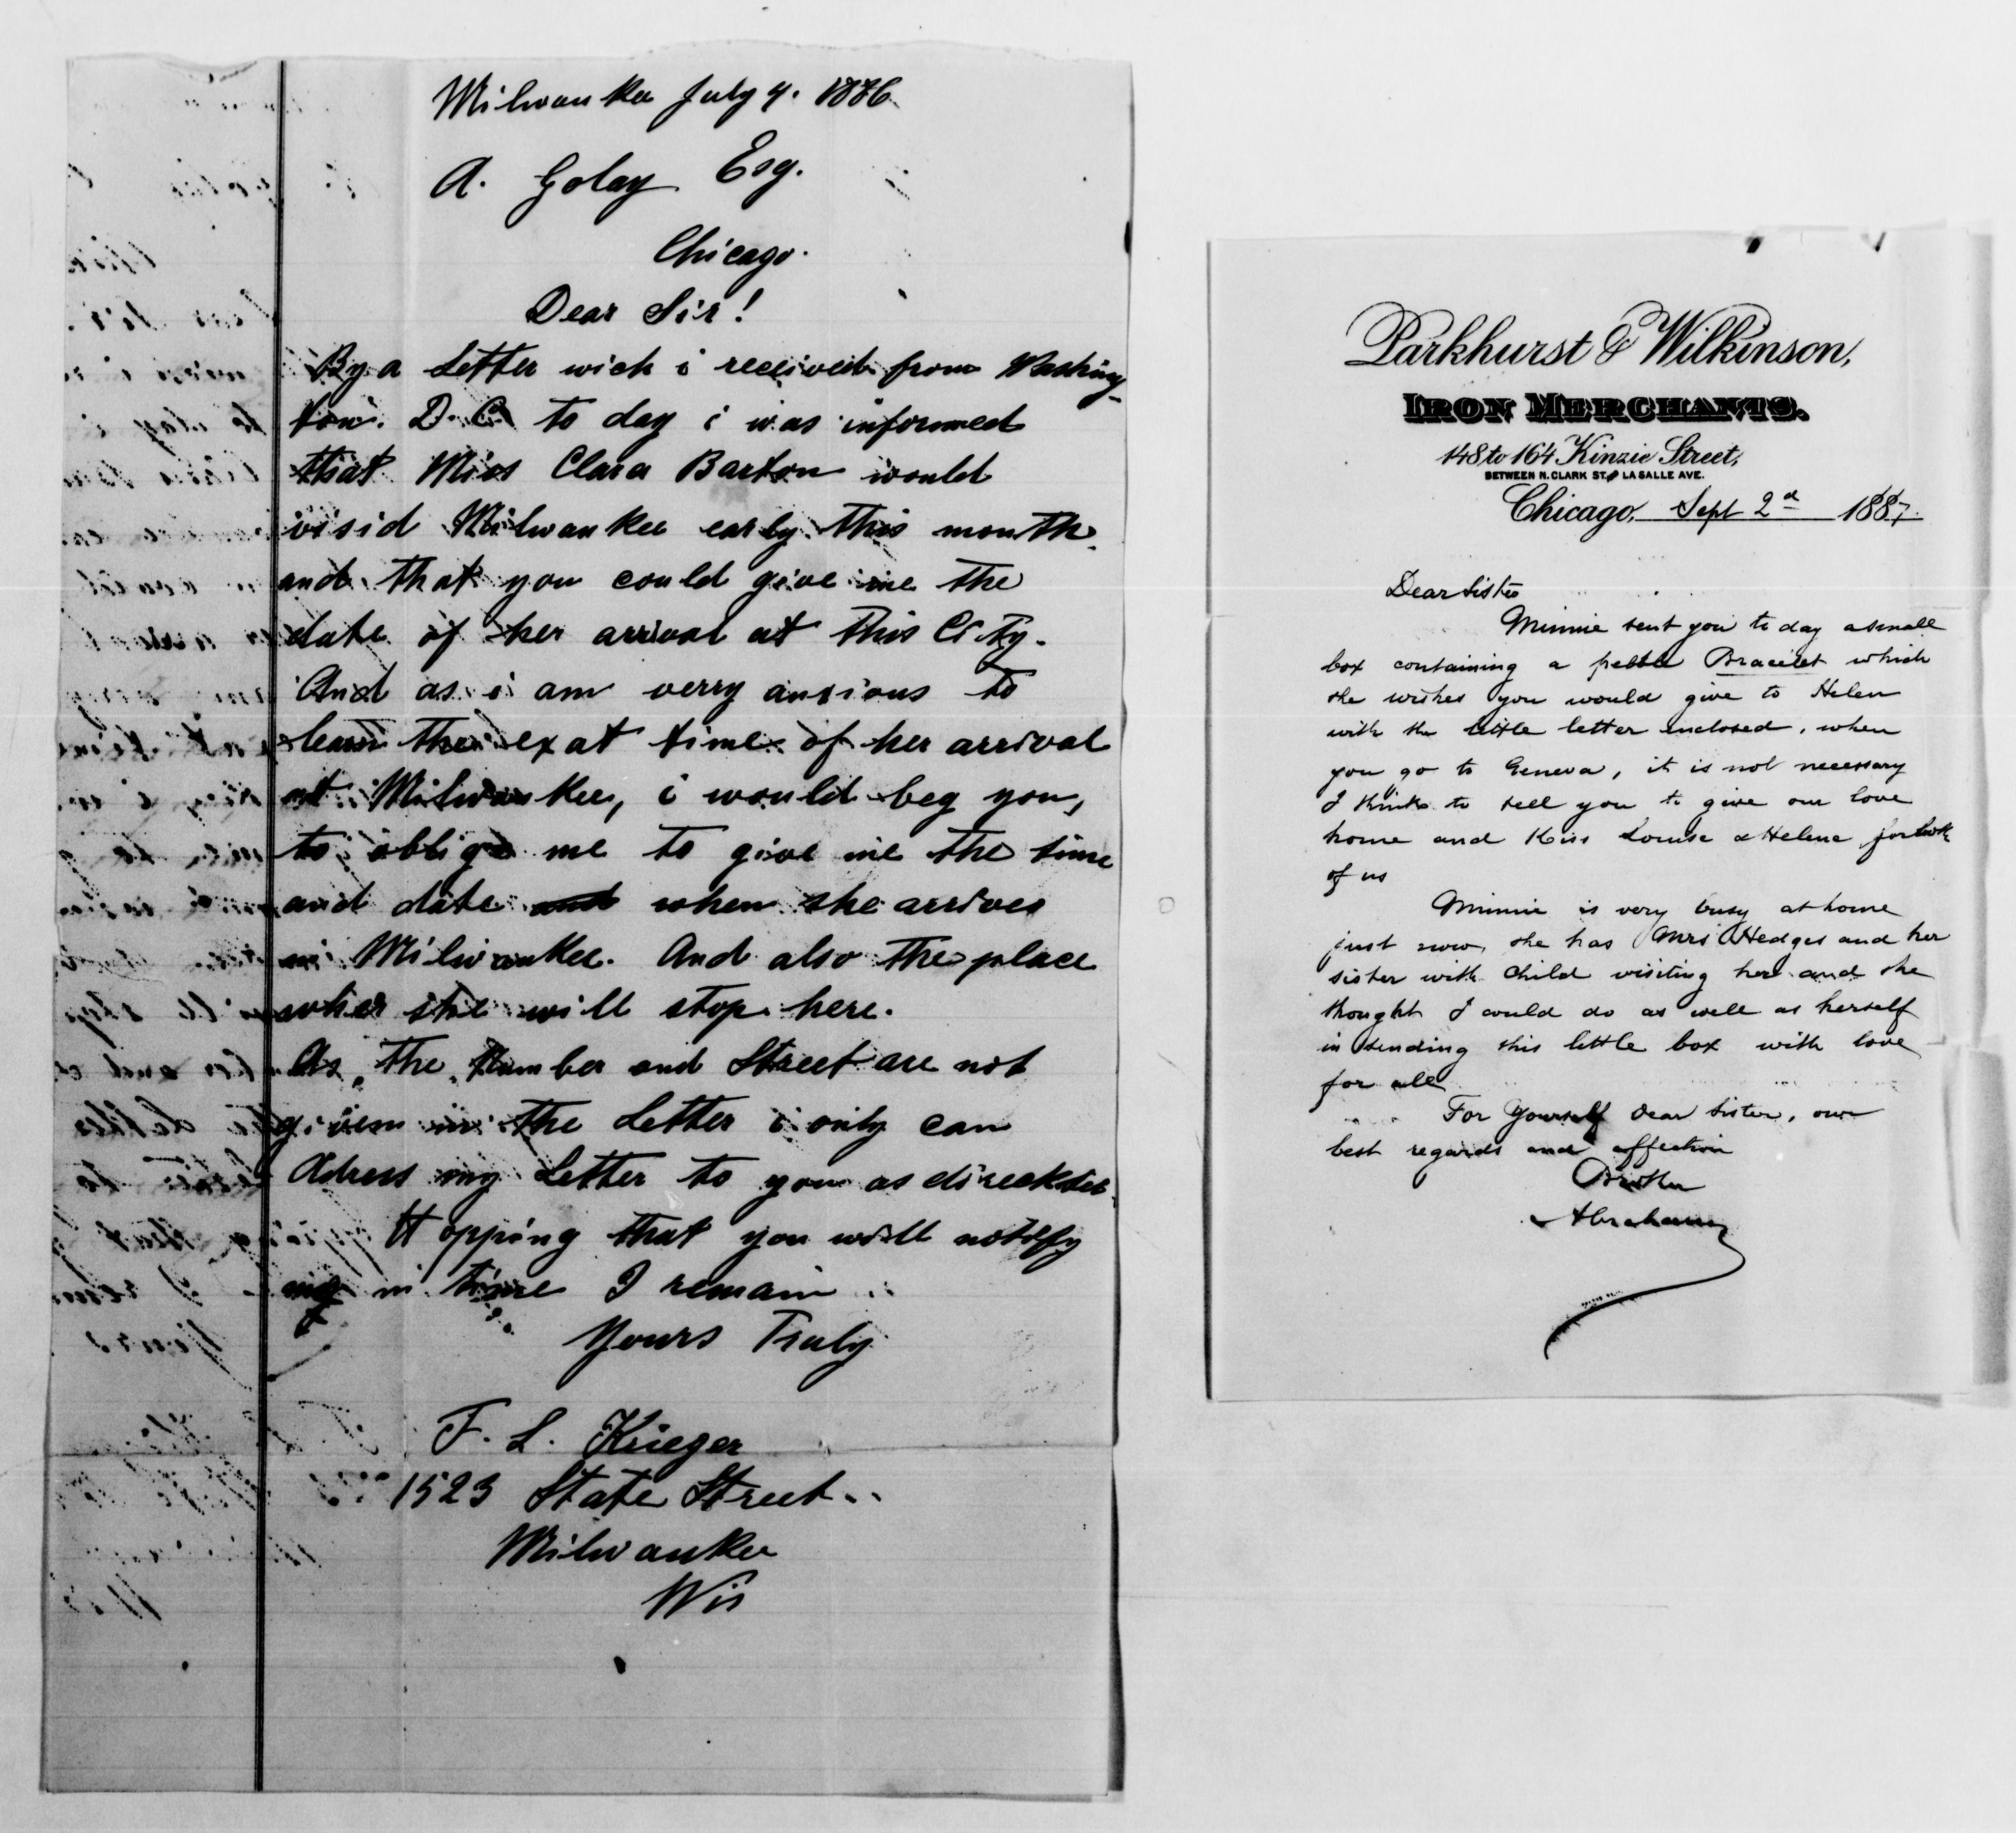 Milwaukee July 4. 1886
A. Golay Esq.
Chicago.
Dear Sir!
By a Letter wich i received from Washing-
ton. D. C. to day i was informed
that Miss Clara Barton would
visid Milwaukee early this month.
and that you could give me the
date of her arrival at this City.
And as i am verry anxious to
learn the exat time of her arrival
at Milwaukee, i would beg you,
to oblige me to give me the time
and date and when she arrives
in Milwaukee. And also the place
wher she will stop here.
As the Number and Street are not
given in the Letter i only can
Adress my Letter to you as
Hopping that you will notify
me in time I remain
Yours Truly
F. L. Krieger
1523 State Street.
Milwaukee
Wis
Parkhurst & Wilkinson,
IRON MERCHANTS.
148 to 164 Kinzie Street,
BETWEEN N. CLARK ST. AND LA SALLE AVE.
Chicago, Sept 2d 1887.
Dear Sister
Minnie sent you to day a small
box containing a pebble Bracelet which
she wishes you would give to Helen
with the little letter enclosed, when
you go to Geneva, it is not necessary
I think to tell you to give our love
home and Kiss Louise & Helene for both
of us
Minnie is very busy at home
just now, she has Mrs Hedges and her
sister with child visiting her and she
thought I could do as well as herself
in sending this little box with love
for all
For Yourself dear Sister, our
best regards and affection
Brother
Abraham